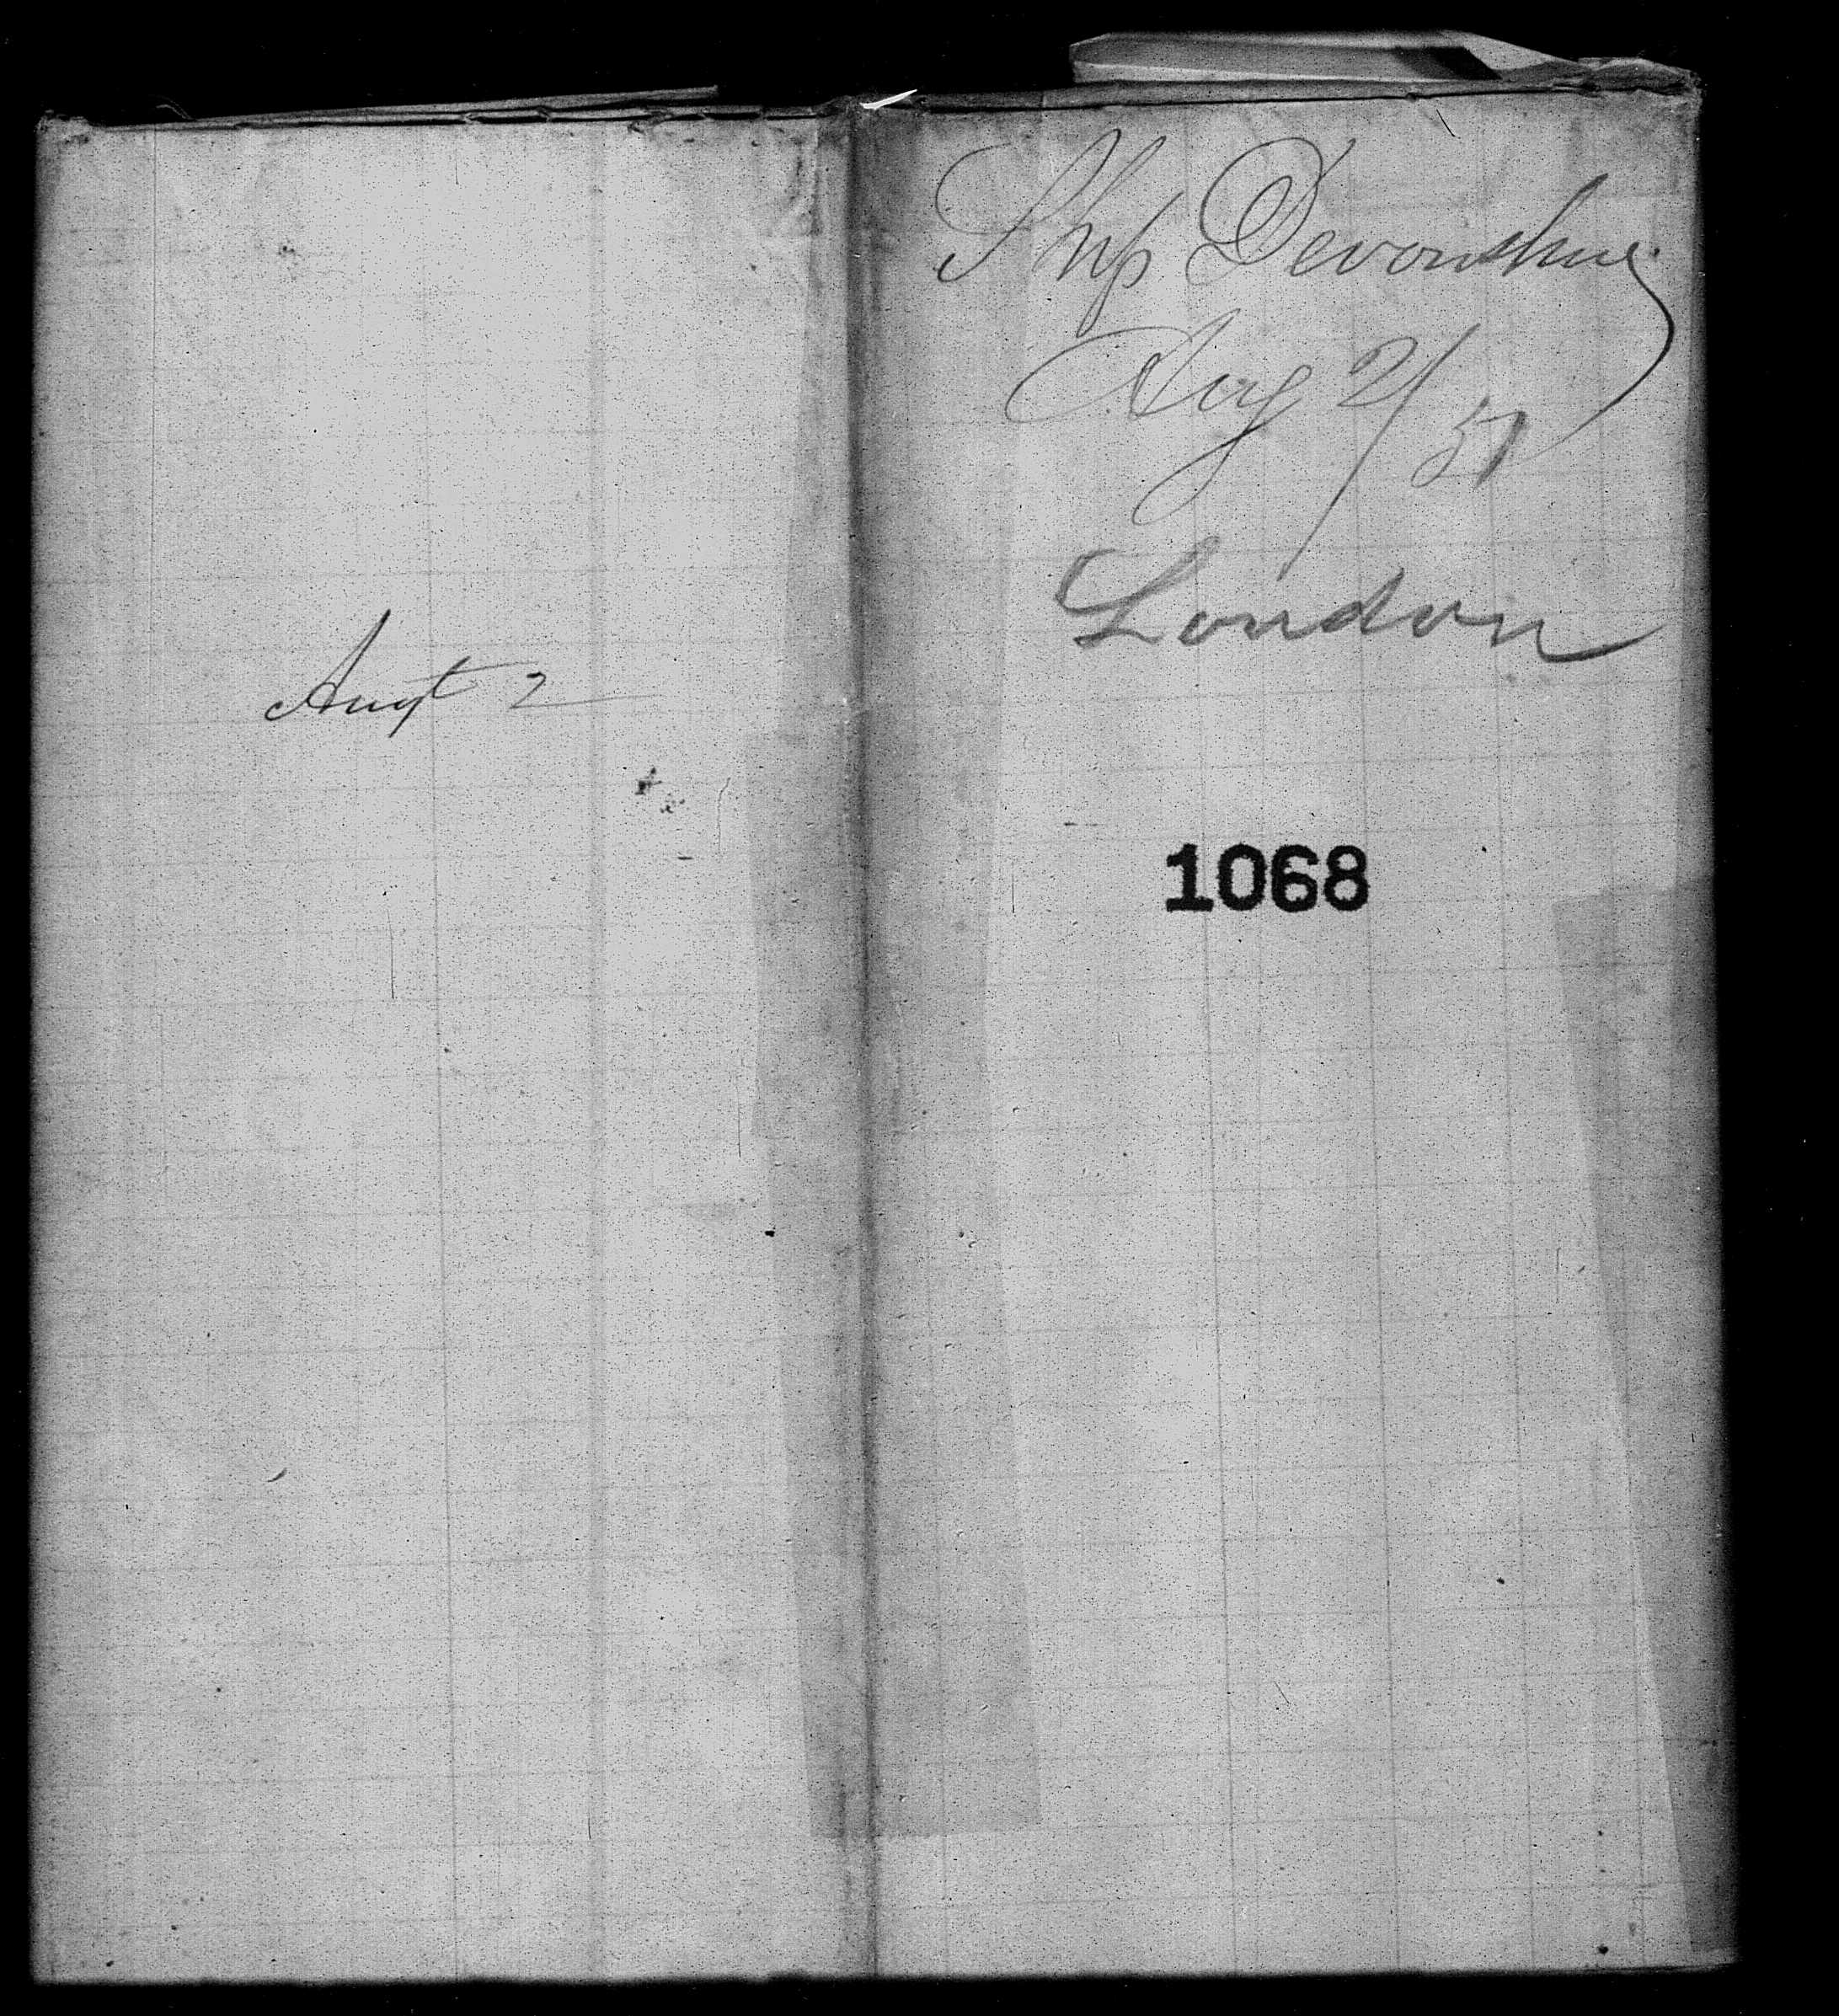 Augt 2
Ship Devonshire
Aug 2/51
London
1068